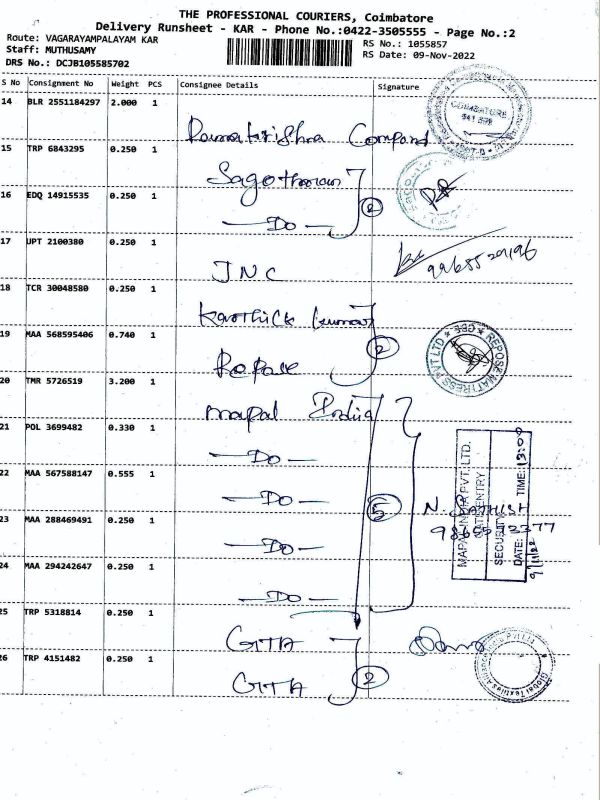 THE PROFESSIONAL COURIERS, Coimbatore
Delivery Runsheet - KAR - Phone No.:0422-3505555 - Page No.:2
Route: VAGARAYAMPALAYAM KAR
RS No.: 1055857
Staff: MUTHUSAMY
RS Date: 09-Nov-2022
DRS No.: DCJB105585702
S No Consignment No Weight PCS Consignee Details Signature
14 BLR 2551184297 2.000 1
COIMBATORE
Ramakrishna Compond
15 TRP 6843295 0.250 1
Sagothman
16 EDQ 14915535 0.250 1
2
—DO—
17 UPT 2100380 0.250 1
9965529196
JNC
18 TCR 30048580 0.250 1
Karthick Kumar
19 MAA 568595406 0.740 1
2
REPOSE MATTRESS PVT LTD ★ CBE ★
Repose
20 TMR 5726519 3.200 1
mapal India
21 POL 3699482 0.330 1
—DO—
22 MAA 567588147 0.555 1
—DO—
5
N. SATHISH
MAPAL INDIA PVT. LTD.
SECURITY
DATE: 9/11/22 TIME: 13:00
23 MAA 288469491 0.250 1
—DO—
24 MAA 294242647 0.250 1
—DO—
25 TRP 5318814 0.250 1
GTA
26 TRP 4151482 0.250 1
2
GTA
Global Textiles Alliance India Pvt Ltd